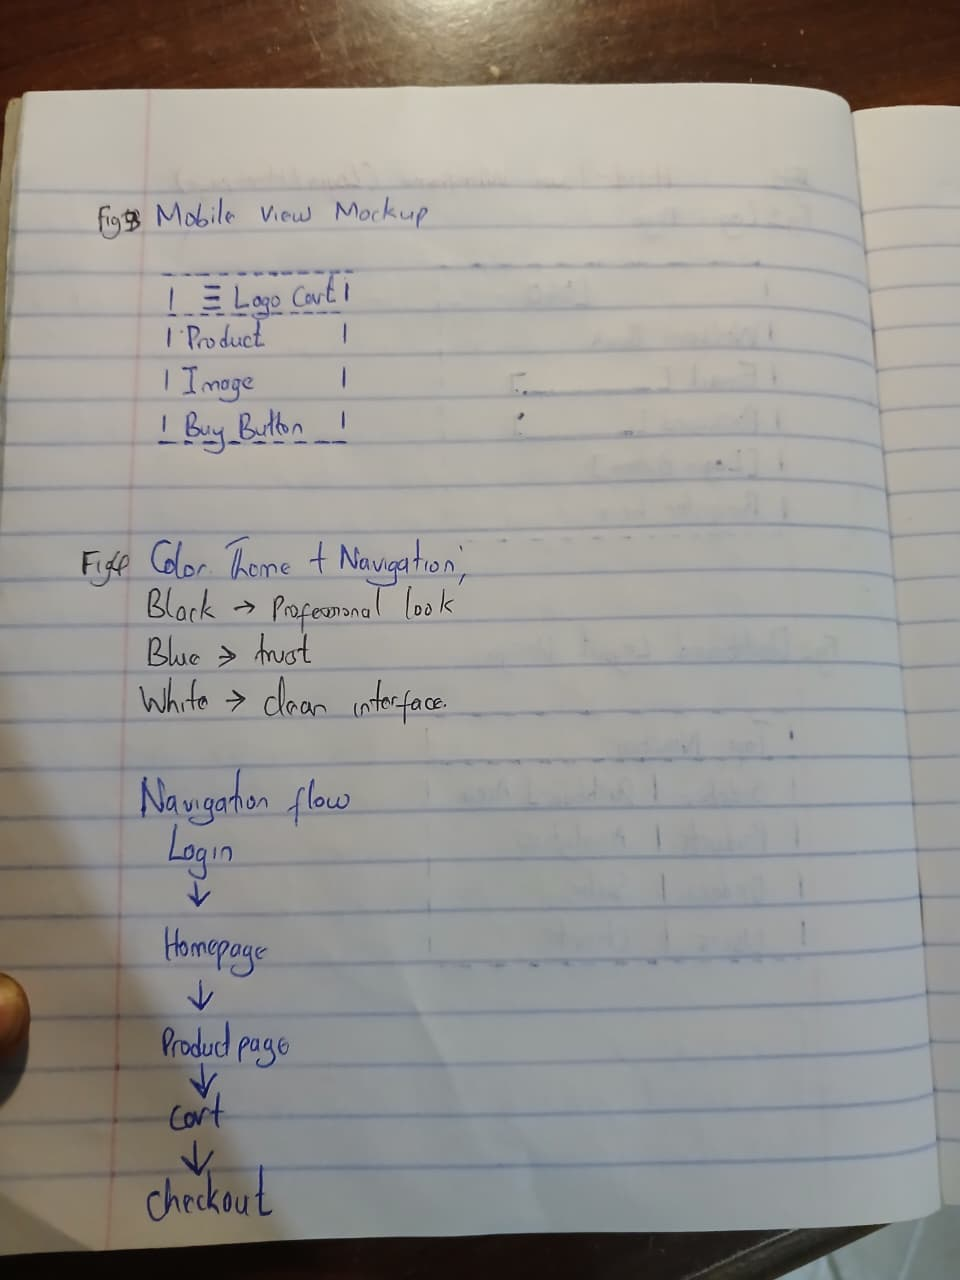 Fig 3 Mobile View Mockup
☰ Logo Cart
Product
Image
Buy Button
Fig 4 Color Theme + Navigation;
Black → Professional look
Blue → trust
White → clean interface.
Navigation flow
Login
↓
Homepage
↓
Product page
↓
Cart
↓
checkout